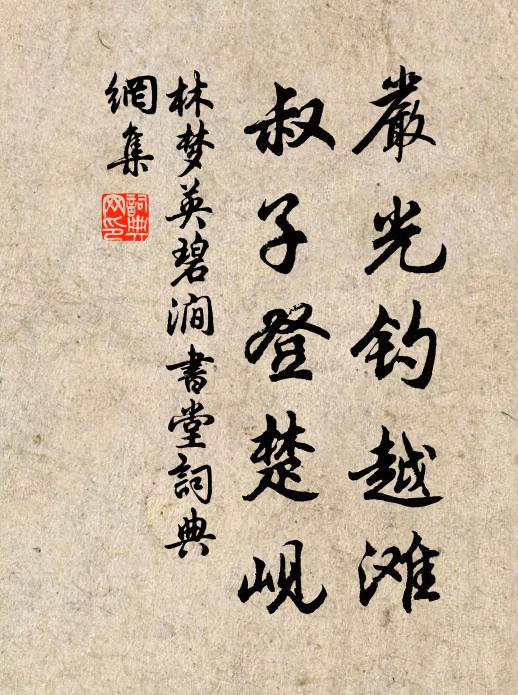 嚴光钓越滩
叔子登楚岘
林梦英碧澗書堂詞典
網集
詞典網印